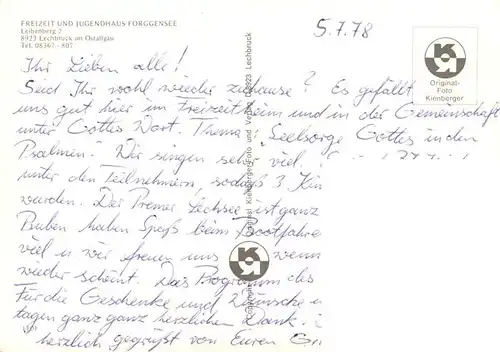 FREIZEIT UND JUGENDHAUS FORGGENSEE
Leibenberg 7
8923 Lechbruck im Ostallgäu
Tel. 08367 - 807
5.7.78
Original-
Foto
Kienberger
Ihr Lieben alle!
Seid Ihr wohl wieder zuhause? Es gefällt
uns gut hier im Freizeitheim und in der Gemeinschaft
unter Gottes Wort. Thema: "Seelsorge Gottes in den
Psalmen". Wir singen sehr viel.
unter den Teilnehmern, sodaß 3 Kin
wurden. Der Premer Lechsee ist ganz
Buben haben Spaß beim Bootfahre
viel u. wir freuen uns wenn
wieder scheint. Das Programm des
Für die Geschenke und Wünsche
tagen ganz ganz herzlichen Dank.
herzlich gegrüßt von Euren
Original Kienberger Foto und Verlag 8923 Lechbruck